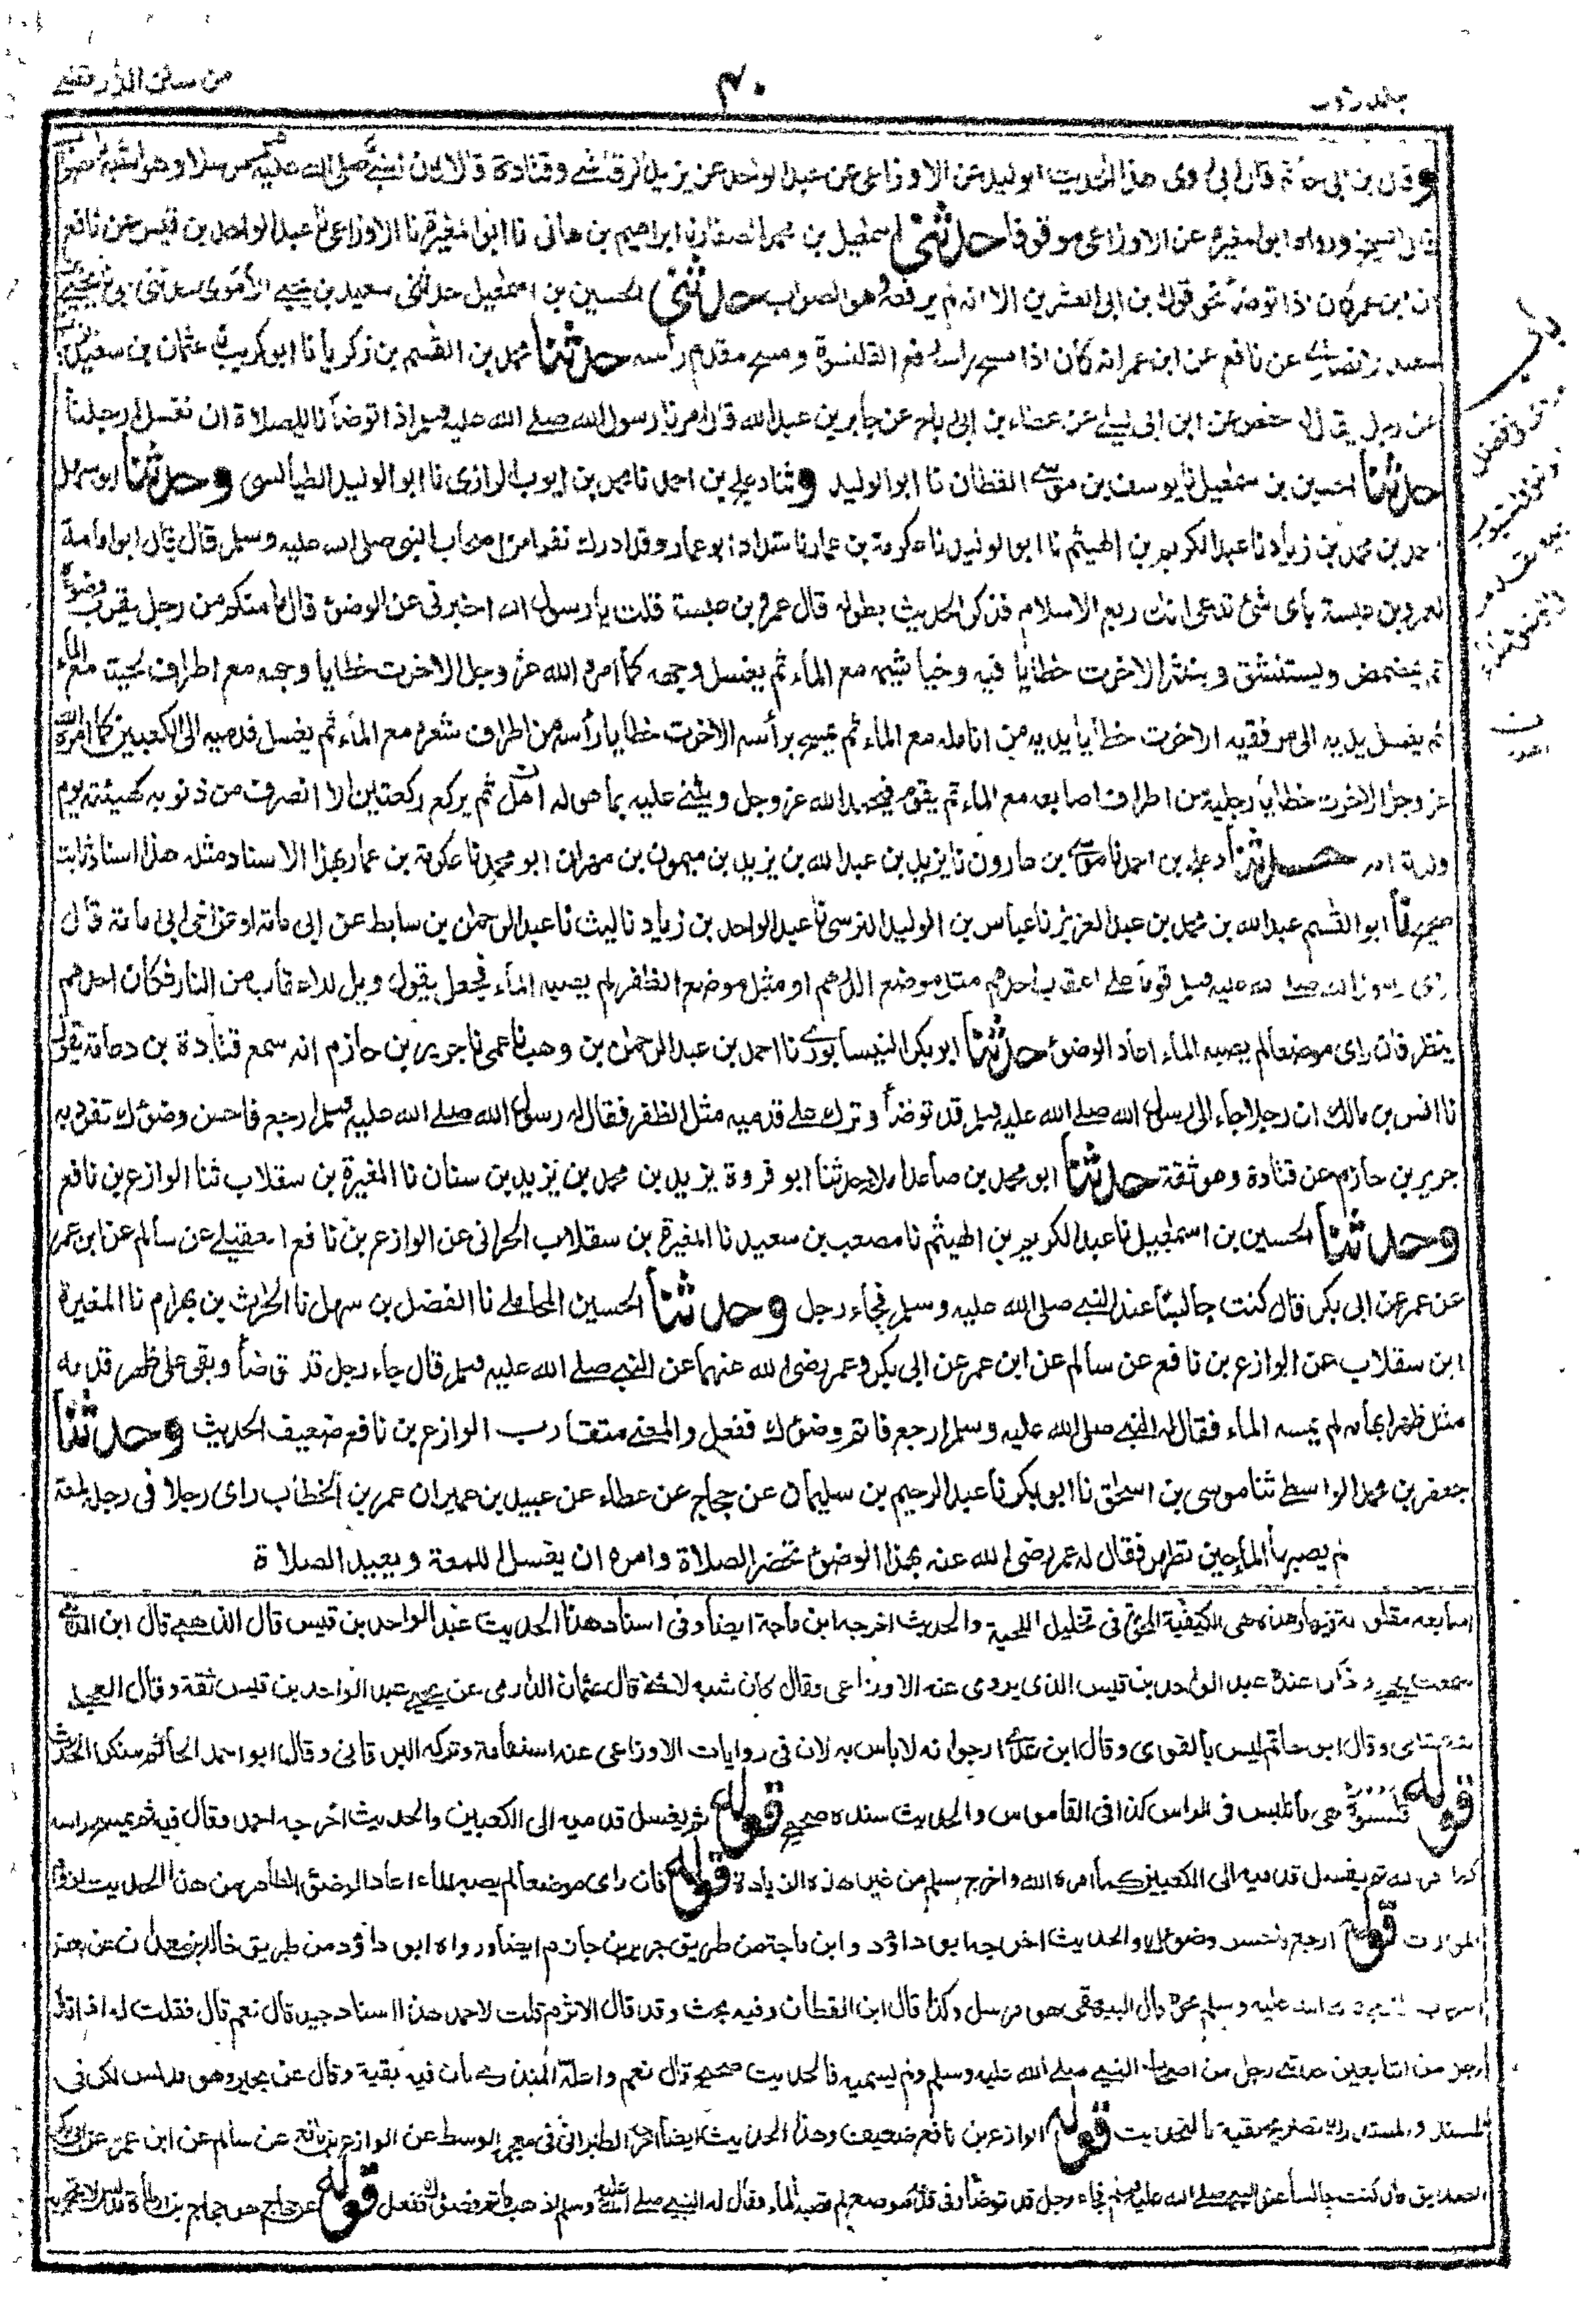 جلد اول
٤٠
من سنن الدارقطنی
وقال ابن ابی حاتم قال ابی روی هذا الحدیث الولید عن الاوزاعی عن عبد الواحد عن یزید الرقاشی وقتادة قالا کان النبی صلی الله علیه وسلم مرسلا وهو اشبه بالصواب
قال الشیخ ورواه ابو المغیرة عن الاوزاعی موقوفا حدثنی اسمٰعیل بن محمد الصفار نا ابراهیم بن هانی نا ابو المغیرة نا الاوزاعی نا عبد الواحد بن قیس عن نافع
ان ابن عمر کان اذا توضأ نحو قول ابن ابی العشرین الا انه لم یرفعه وهو الصواب حدثنی الحسین بن اسمٰعیل حدثنی سعید بن یحیی الاموی حدثنی ابی نا یحیی
سعید الانصاری عن نافع عن ابن عمر انه کان اذا مسح راسه رفع القلنسوة ومسح مقدم رأسه حدثنا محمد بن القٰسم بن زکریا نا ابو کریب نا عثمان بن سعید
عن رجل یقال له حفص عن ابن ابی لیلی عن عطاء بن ابی رباح عن جابر بن عبد الله قال امرنا رسول الله صلی الله علیه وسلم اذا توضأنا للصلاة ان نغسل ارجلنا
حدثنا الحسین بن اسمٰعیل نا یوسف بن موسی القطان نا ابو الولید وثنا دعلج بن احمد نا محمد بن ایوب الرازی نا ابو الولید الطیالسی وحدثنا ابو سهل
احمد بن محمد بن زیاد نا عبد الکریم بن الهیثم نا ابو الولید نا عکرمة بن عمار نا شداد ابو عمار وقد ادرک نفرا من اصحاب النبی صلی الله علیه وسلم قال قال ابو امامة
لعمرو بن عبسة بأی شئ تدعی انک ربع الاسلام فذکر الحدیث بطوله قال عمرو بن عبسة قلت یا رسول الله اخبرنی عن الوضوء قال ما منکم من رجل یقرب وضوءه
ثم یمضمض ویستنشق وینتثر الا خرت خطایا فیه وخیاشیمه مع الماء ثم یغسل وجهه کما امره الله عز وجل الا خرت خطایا وجهه مع اطراف لحیته مع الماء
ثم یغسل یدیه الی مرفقیه الا خرت خطایا یدیه من انامله مع الماء ثم یمسح برأسه الا خرت خطایا رأسه من اطراف شعره مع الماء ثم یغسل قدمیه الی الکعبین کما امره الله
عز وجل الا خرت خطایا رجلیه من اطراف اصابعه مع الماء ثم یقوم فیحمد الله عز وجل ویثنی علیه بما هو له اهل ثم یرکع رکعتین الا انصرف من ذنوبه کهیئته یوم
ولدته امه حدثنا دعلج بن احمد نا موسی بن هارون نا یزید بن عبد الله بن یزید بن میمون بن مهران ابو محمد نا عکرمة بن عمار بهذا الاسناد مثله هذا اسناد ثابت
صحیح نا ابو القٰسم عبد الله بن محمد بن عبد العزیز نا عباس بن الولید النرسی نا عبد الواحد بن زیاد نا لیث نا عبد الرحمٰن بن سابط عن ابی امامة او عن اخی ابی امامة قال
رای رسول الله صلی الله علیه وسلم قوما علی اعقاب احدهم مثل موضع الدرهم او مثل موضع الظفر لم یصبه الماء فجعل یقول ویل للاعقاب من النار فکان احدهم
ینظر فان رای موضعا لم یصبه الماء اعاد الوضوء حدثنا ابو بکر النیسابوری نا احمد بن عبد الرحمٰن بن وهب نا عمی نا جریر بن حازم انه سمع قتادة بن دعامة یقول
نا انس بن مالک ان رجلا جاء الی رسول الله صلی الله علیه وسلم قد توضأ وترک علی قدمیه مثل الظفر فقال له رسول الله صلی الله علیه وسلم ارجع فاحسن وضوءک تفرد به
جریر بن حازم عن قتادة وهو ثقة حدثنا ابو محمد بن صاعد املاء حدثنا ابو فروة یزید بن محمد بن یزید بن سنان نا المغیرة بن سقلاب ثنا الوازع بن نافع
وحدثنا الحسین بن اسمٰعیل نا عبد الکریم بن الهیثم نا مصعب بن سعید نا المغیرة بن سقلاب الحرانی عن الوازع بن نافع العقیلی عن سالم عن ابن عمر
عن عمر عن ابی بکر قال کنت جالسا عند النبی صلی الله علیه وسلم فجاء رجل وحدثنا الحسین المحاملی نا الفضل بن سهل نا الحرٰث بن بهرام نا المغیرة
ابن سقلاب عن الوازع بن نافع عن سالم عن ابن عمر عن ابی بکر وعمر رضی الله عنهما عن النبی صلی الله علیه وسلم قال جاء رجل قد توضأ وبقی علی ظهر قدمه
مثل ظفر ابهامه لم یمسه الماء فقال له النبی صلی الله علیه وسلم ارجع فاتم وضوءک ففعل والمعنی متقارب الوازع بن نافع ضعیف الحدیث وحدثنا
جعفر بن محمد الواسطی ثنا موسی بن اسحٰق نا ابو بکر نا عبد الرحیم بن سلیمان عن حجاج عن عطاء عن عبید بن عمیر ان عمر بن الخطاب رای رجلا فی رجله لمعة
لم یصبها الماء حین تطهر فقال له عمر رضی الله عنه بهذا الوضوء تحضر الصلاة وامره ان یغسل اللمعة ویعید الصلاة
فیها وهذه هی الکیفیة فی تخلیل اللحیة والحدیث اخرجه ابن ماجة ایضا وفی اسناد هذا الحدیث عبد الواحد بن قیس قال الذهبی قال ابن المدینی
سمعت یحیی وذکر عنده عبد الواحد بن قیس الذی یروی عنه الاوزاعی وقال کان شبه لا شئ قال عثمان الدارمی عن یحیی عبد الواحد بن قیس ثقة وقال العجلی
وقال ابو حاتم لیس بالقوی وقال ابن عدی ارجو انه لا باس به لان فی روایات الاوزاعی عنه استقامة وترکه البرقانی وقال ابو احمد الحاکم منکر الحدیث
قوله قلنسوة هی ما تلبس فی الراس کذا فی القاموس والحدیث سنده صحیح قوله ثم یغسل قدمیه الی الکعبین والحدیث اخرجه احمد وقال فیه ثم یمسح راسه
کما امر الله ثم یغسل قدمیه الی الکعبین کما امره الله واخرج مسلم من غیر هذه الزیادة قوله فان رای موضعا لم یصبه الماء اعاد الوضوء الظاهر من هذا الحدیث
قوله ارجع فاحسن وضوءک والحدیث اخرجه ابو داؤد وابن ماجة من طریق جریر بن حازم ایضا ورواه ابو داؤد من طریق خالد بن معدان عن بعض
اصحاب النبی صلی الله علیه وسلم نحوه قال البیهقی هو مرسل وکذا قال ابن القطان وفیه بحث وقد قال الاثرم قلت لاحمد هذا اسناد جید قال نعم قال فقلت له اذا قال
رجل من التابعین حدثنی رجل من اصحاب النبی صلی الله علیه وسلم ولم یسمیه فالحدیث صحیح قال نعم واعله المنذری بان فیه بقیة وقال عن بحیر وهو مدلس لکن فی
المسند والمستدرک تصریح بقیة بالتحدیث قوله الوازع بن نافع ضعیف وهذا الحدیث ایضا اخرجه الطبرانی فی معجمه الوسط عن الوازع بن نافع عن سالم عن ابن عمر عن ابی بکر
الصدیق قال کنت جالسا عند النبی صلی الله علیه وسلم فجاء رجل قد توضأ وفی قدمه موضع لم یصبه الماء فقال له النبی صلی الله علیه وسلم اذهب فاتم وضوءک ففعل قوله عن حجاج هو حجاج بن ارطاة